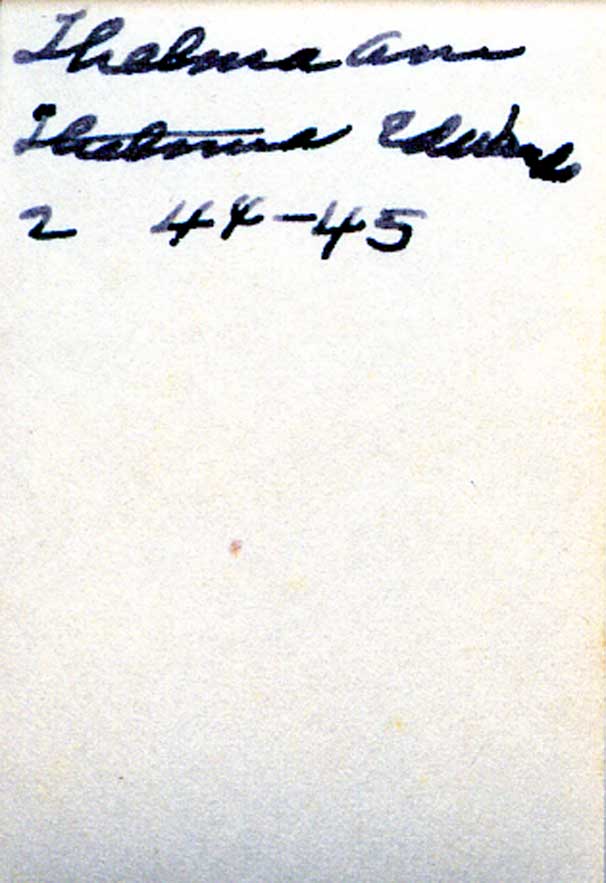 Thelma Ann
Thelma Edwards
2 44-45